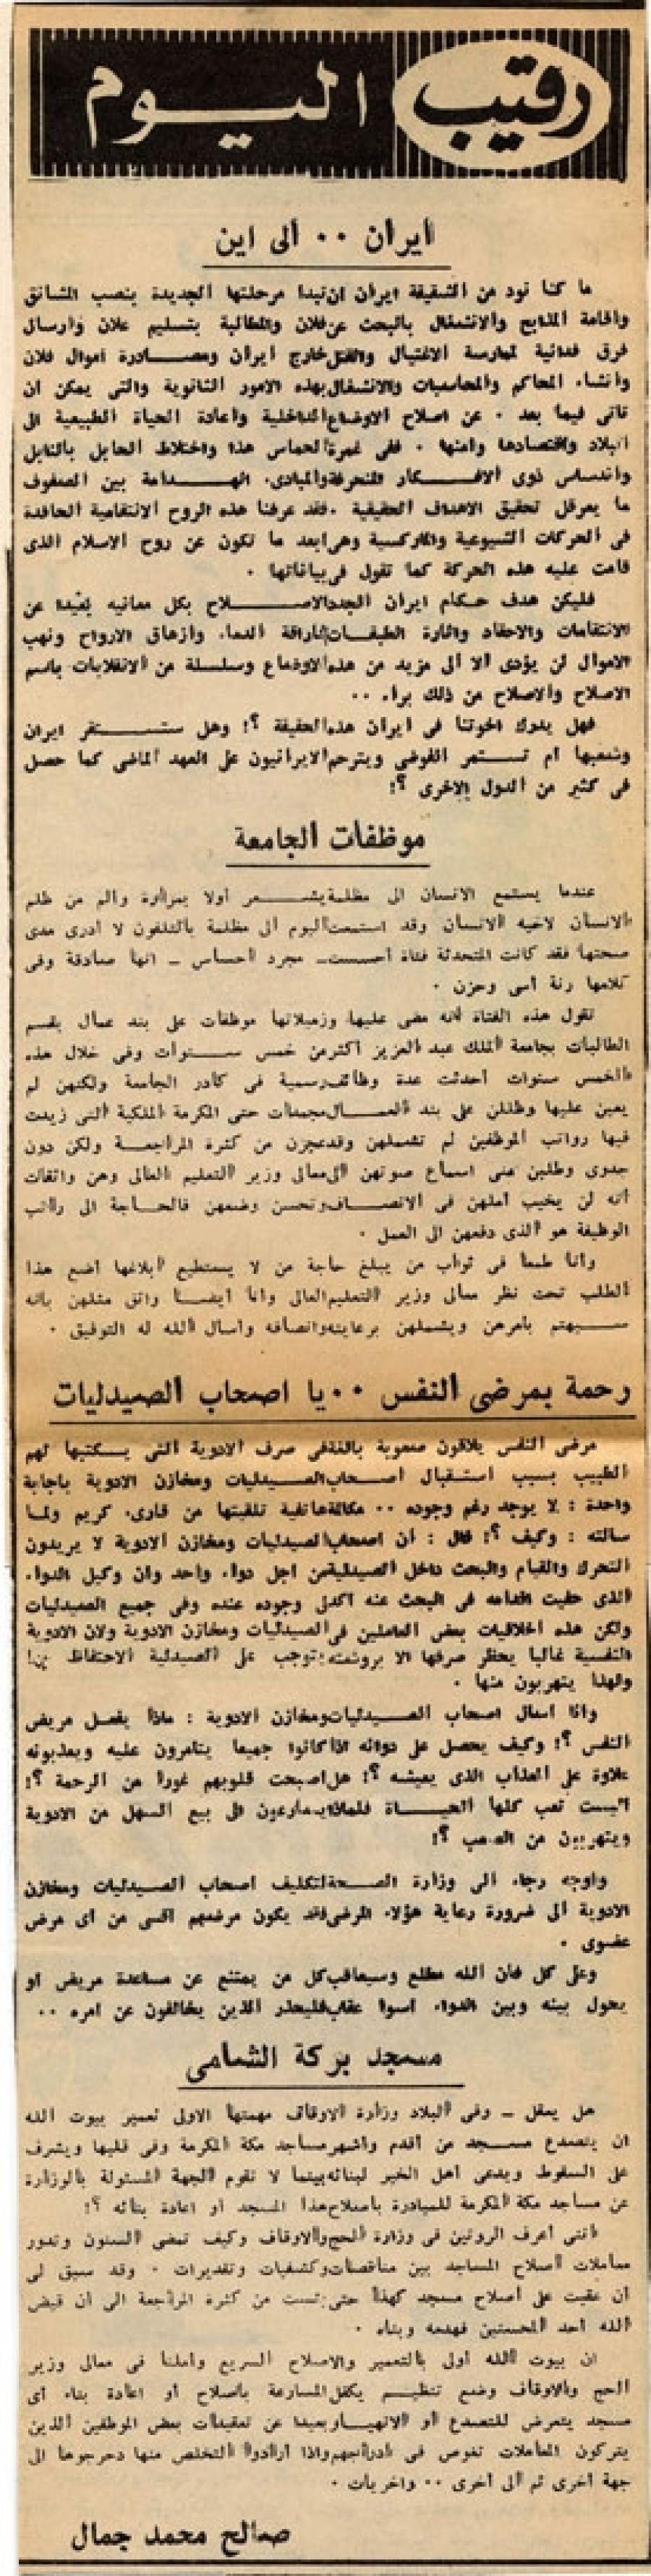 رقيب اليوم
ايران ٠٠ الى اين
ما كنا نود من الشقيقة ايران ان تبدا مرحلتها الجديدة بنصب المشانق
واقامة المذابح والانشغال بالبحث عن فلان والمطالبة بتسليم علان وارسال
فرق فدائية لممارسة الاغتيال والقتل خارج ايران ومصادرة اموال فلان
وانشاء المحاكم والمحاسبات والانشغال بهذه الامور الثانوية والتى يمكن ان
تاتى فيما بعد ٠ عن اصلاح الاوضاع الداخلية واعادة الحياة الطبيعية الى
البلاد واقتصادها وامنها ٠ ففى غمرة الحماس هذا واختلاط الحابل بالنابل
واندساس ذوى الافكار المنحرفة والمبادىء الهدامة بين الصفوف
ما يعرقل تحقيق الاهداف الحقيقية ٠ فقد عرفنا هذه الروح الانتقامية الحاقدة
فى الحركات الشيوعية والماركسية وهى ابعد ما تكون عن روح الاسلام الذى
قامت عليه هذه الحركة كما تقول فى بياناتها ٠
فليكن هدف حكام ايران الجدد الاصلاح بكل معانيه بعيدا عن
الانتقامات والاحقاد واثارة الطبقات لاراقة الدماء وازهاق الارواح ونهب
الاموال لن يؤدى الا الى مزيد من هذه الاوضاع وسلسلة من الانقلابات باسم
الاصلاح والاصلاح من ذلك براء ٠٠
فهل يدرك اخوتنا فى ايران هذه الحقيقة ؟! وهل ستستقر ايران
وشعبها ام تستمر الفوضى ويترحم الايرانيون على العهد الماضى كما حصل
فى كثير من الدول الاخرى ؟!
موظفات الجامعة
عندما يستمع الانسان الى مظلمة يشعر أولا بمرارة والم من ظلم
الانسان لاخيه الانسان وقد استمعت اليوم الى مظلمة بالتلفون لا أدرى مدى
صحتها فقد كانت المتحدثة فتاة أحسست ـ مجرد احساس ـ انها صادقة وفى
كلامها رنة أسى وحزن ٠
تقول هذه الفتاة انه مضى عليها وزميلاتها موظفات على بند عمال بقسم
الطالبات بجامعة الملك عبد العزيز أكثر من خمس سنوات وفى خلال هذه
الخمس سنوات أحدثت عدة وظائف رسمية فى كادر الجامعة ولكنهن لم
يعين عليها وظللن على بند العمال مجمدات حتى المكرمة الملكية التى زيدت
فيها رواتب الموظفين لم تشملهن وقد عجزن من كثرة المراجعة ولكن دون
جدوى وطلبن منى اسماع صوتهن الى معالى وزير التعليم العالى وهن واثقات
أنه لن يخيب أملهن فى الانصاف وتحسن وضعهن فالحاجة الى راتب
الوظيفة هو الذى دفعهن الى العمل ٠
وأنا طمعا فى ثواب من يبلغ حاجة من لا يستطيع ابلاغها أضع هذا
الطلب تحت نظر معالى وزير التعليم العالى وأنا أيضا واثق مثلهن بأنه
سيهتم بأمرهن ويشملهن برعايته وانصافه وأسال الله له التوفيق ٠
رحمة بمرضى النفس ٠٠ يا اصحاب الصيدليات
مرضى النفس يلاقون صعوبة بالغة فى صرف الادوية التى يكتبها لهم
الطبيب بسبب استقبال اصحاب الصيدليات ومخازن الادوية باجابة
واحدة : لا يوجد رغم وجوده ٠٠ مكالمة هاتفية تلقيتها من قارىء كريم ولما
سالته : وكيف ؟! قال : أن اصحاب الصيدليات ومخازن الادوية لا يريدون
التحرك والقيام والبحث داخل الصيدلية من اجل دواء واحد وان وكيل الدواء
الذى حفيت اقدامه فى البحث عنه اكد لى وجوده عنده وفى جميع الصيدليات
ولكن هذه اخلاقيات بعض العاملين فى الصيدليات ومخازن الادوية ولان الادوية
النفسية غالبا يحظر صرفها الا بروشته يتوجب على الصيدلية الاحتفاظ بها
ولهذا يتهربون منها ٠
وانا اسال اصحاب الصيدليات ومخازن الادوية : ماذا يفعل مريض
النفس ؟! وكيف يحصل على دوائه اذا كانوا جميعا يتامرون عليه ويعذبونه
علاوة على العذاب الذى يعيشه ؟! هل اصبحت قلوبهم غورا من الرحمة ؟!
اليست تعب كلها الحياة فلماذا يسارعون الى بيع السهل من الادوية
ويتهربون من الصعب ؟!
واوجه رجاء الى وزارة الصحة لتكليف اصحاب الصيدليات ومخازن
الادوية الى ضرورة رعاية هؤلاء المرضى فقد يكون مرضهم اقسى من اى مرض
عضوى ٠
وعلى كل فان الله مطلع وسيعاقب كل من يمتنع عن مساعدة مريض او
يحول بينه وبين الدواء اسوا عقاب فليحذر الذين يخالفون عن امره ٠٠
مسجد بركة الشامى
هل يعقل ـ وفى البلاد وزارة الاوقاف مهمتها الاولى تعمير بيوت الله
ان يتصدع مسجد من أقدم وأشهر مساجد مكة المكرمة وفى قلبها ويشرف
على السقوط ويدعى أهل الخير لبنائه بينما لا تقوم الجهة المسئولة بالوزارة
عن مساجد مكة المكرمة للمبادرة باصلاح هذا المسجد أو اعادة بنائه ؟!
اننى أعرف الروتين فى وزارة الحج والاوقاف وكيف تمضى السنون وتدور
معاملات اصلاح المساجد بين مناقصات وكشفيات وتقديرات ٠ وقد سبق لى
ان عقبت على اصلاح مسجد كهذا حتى يئست من كثرة المراجعة الى أن قيض
الله أحد المحسنين فهدمه وبناه ٠
ان بيوت الله أولى بالتعمير والاصلاح السريع وأملنا فى معالى وزير
الحج والاوقاف وضع تنظيم يكفل المسارعة باصلاح أو اعادة بناء أى
مسجد يتعرض للتصدع أو الانهيار بعيدا عن تعقيدات بعض الموظفين الذين
يتركون المعاملات تغوص فى أدراجهم واذا أرادوا التخلص منها دحرجوها الى
جهة أخرى ثم الى أخرى ٠٠ واخريات ٠
صالح محمد جمال